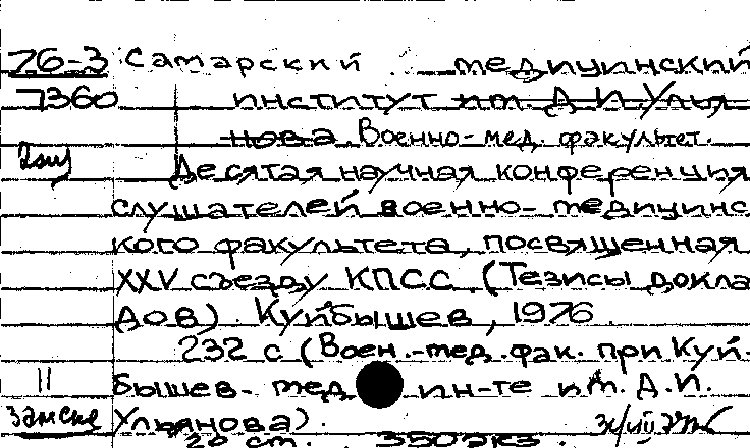 76-3 Самарский медицинский
7360 институт им. Д.И. Улья
нова. Военно-мед. факультет.
Десятая научная конференция
слушателей военно-медицинс
кого факультета, посвященная
XXV съезду КПСС. (Тезисы докла
дов). Куйбышев, 1976.
232 с (Воен.-мед. фак. при Куй-
11 бышев. мед ин-те им. Д.И.
Ульянова).
20 см. 350 экз.